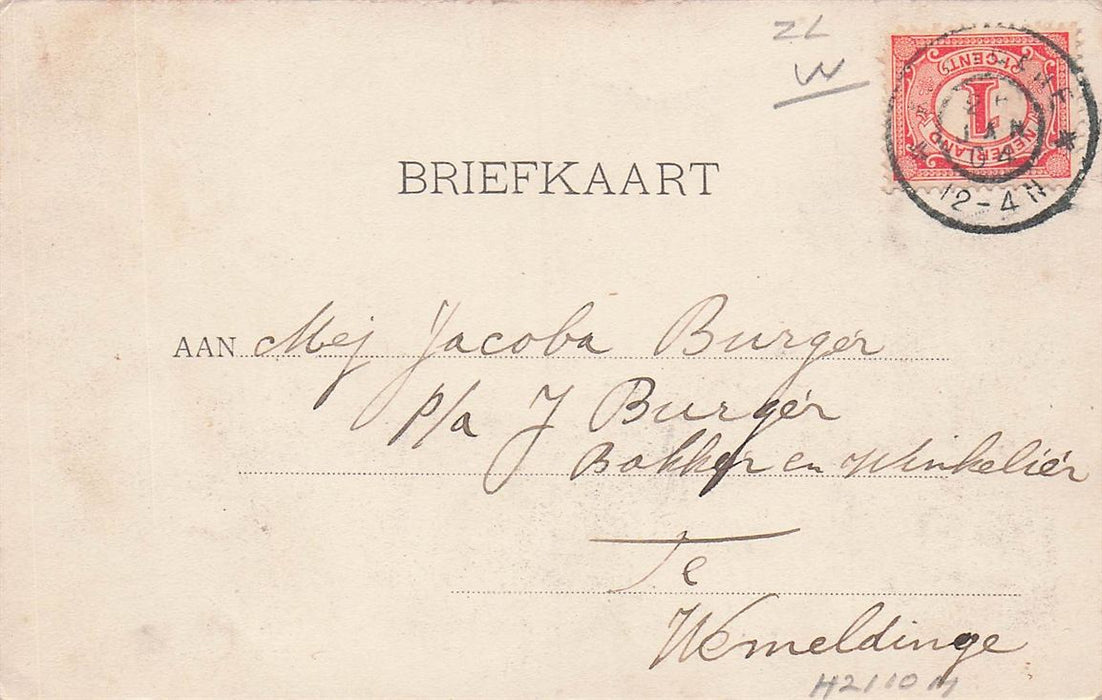 ZL
W
1 CENT
1
NEDERLAND
JAN
04
12-4N
BRIEFKAART
AAN Mej Jacoba Burger
p/a J Burger
Bakker en Winkelier
Te
Wemeldinge